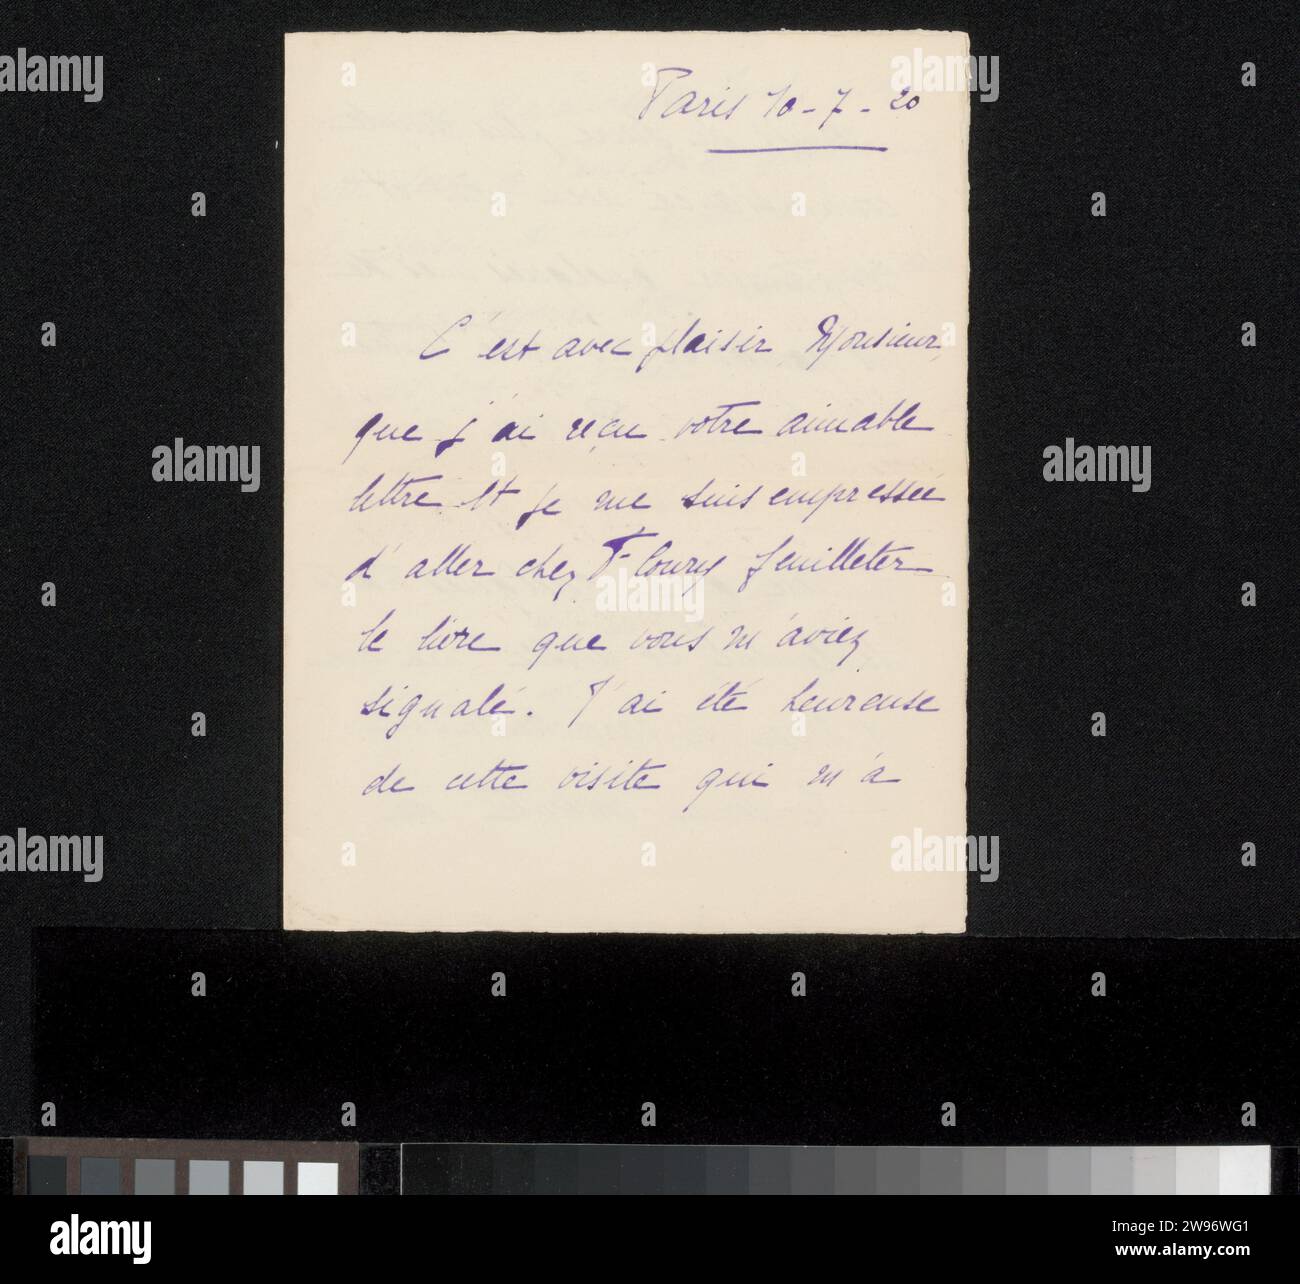 Paris 10-7-20
C'est avec plaisir, Monsieur,
que j'ai reçu votre aimable
lettre et je me suis empressée
d'aller chez Floury feuilleter
le livre que vous m'aviez
signalé. J'ai été heureuse
de cette visite qui m'a
alamy
Image ID: 2W96WG1
www.alamy.com